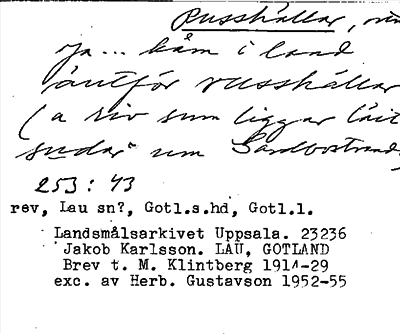 Russhällar,
Ja... kåm i land
äntför russhällar
(a riv sum liggar läit
sudar um Sandbostrand
253:43
rev, Lau sn?, Gotl.s.hd, Gotl.l.
Landsmålsarkivet Uppsala. 23236
Jakob Karlsson. LAU, GOTLAND
Brev t. M. Klintberg 1914-29
exc. av Herb. Gustavson 1952-55